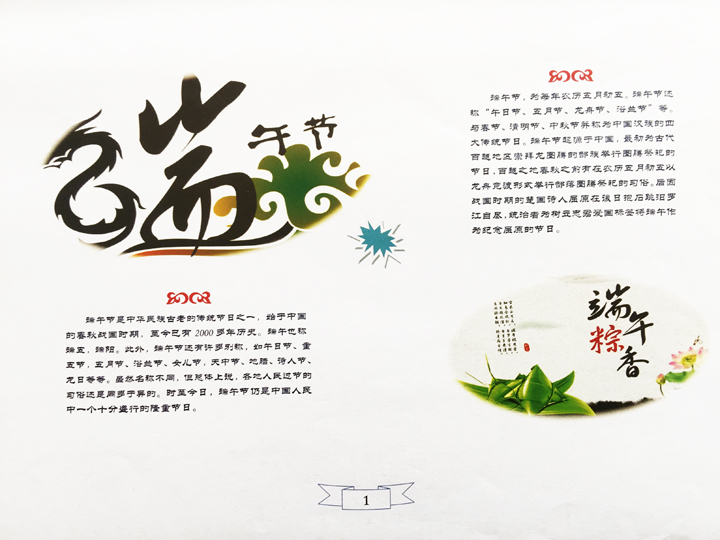 端午节
端午节是中华民族古老的传统节日之一，始于中国
的春秋战国时期，至今已有2000多年历史。端午也称
端五，端阳。此外，端午节还有许多别称，如午日节、重
五节，五月节、浴兰节、女儿节，天中节、地腊、诗人节、
龙日等等。虽然名称不同，但总体上说，各地人民过节的
习俗还是同多于异的。时至今日，端午节仍是中国人民
中一个十分盛行的隆重节日。
端午节，为每年农历五月初五。端午节还
称“午日节、五月节、龙舟节、浴兰节”等。
与春节、清明节、中秋节并称为中国汉族的四
大传统节日。端午节起源于中国，最初为古代
百越地区崇拜龙图腾的部族举行图腾祭祀的
节日，百越之地春秋之前有在农历五月初五以
龙舟竞渡形式举行部落图腾祭祀的习俗。后因
战国时期的楚国诗人屈原在该日抱石跳汨罗
江自尽，统治者为树立忠君爱国标签将端午作
为纪念屈原的节日。
端午
粽香
1